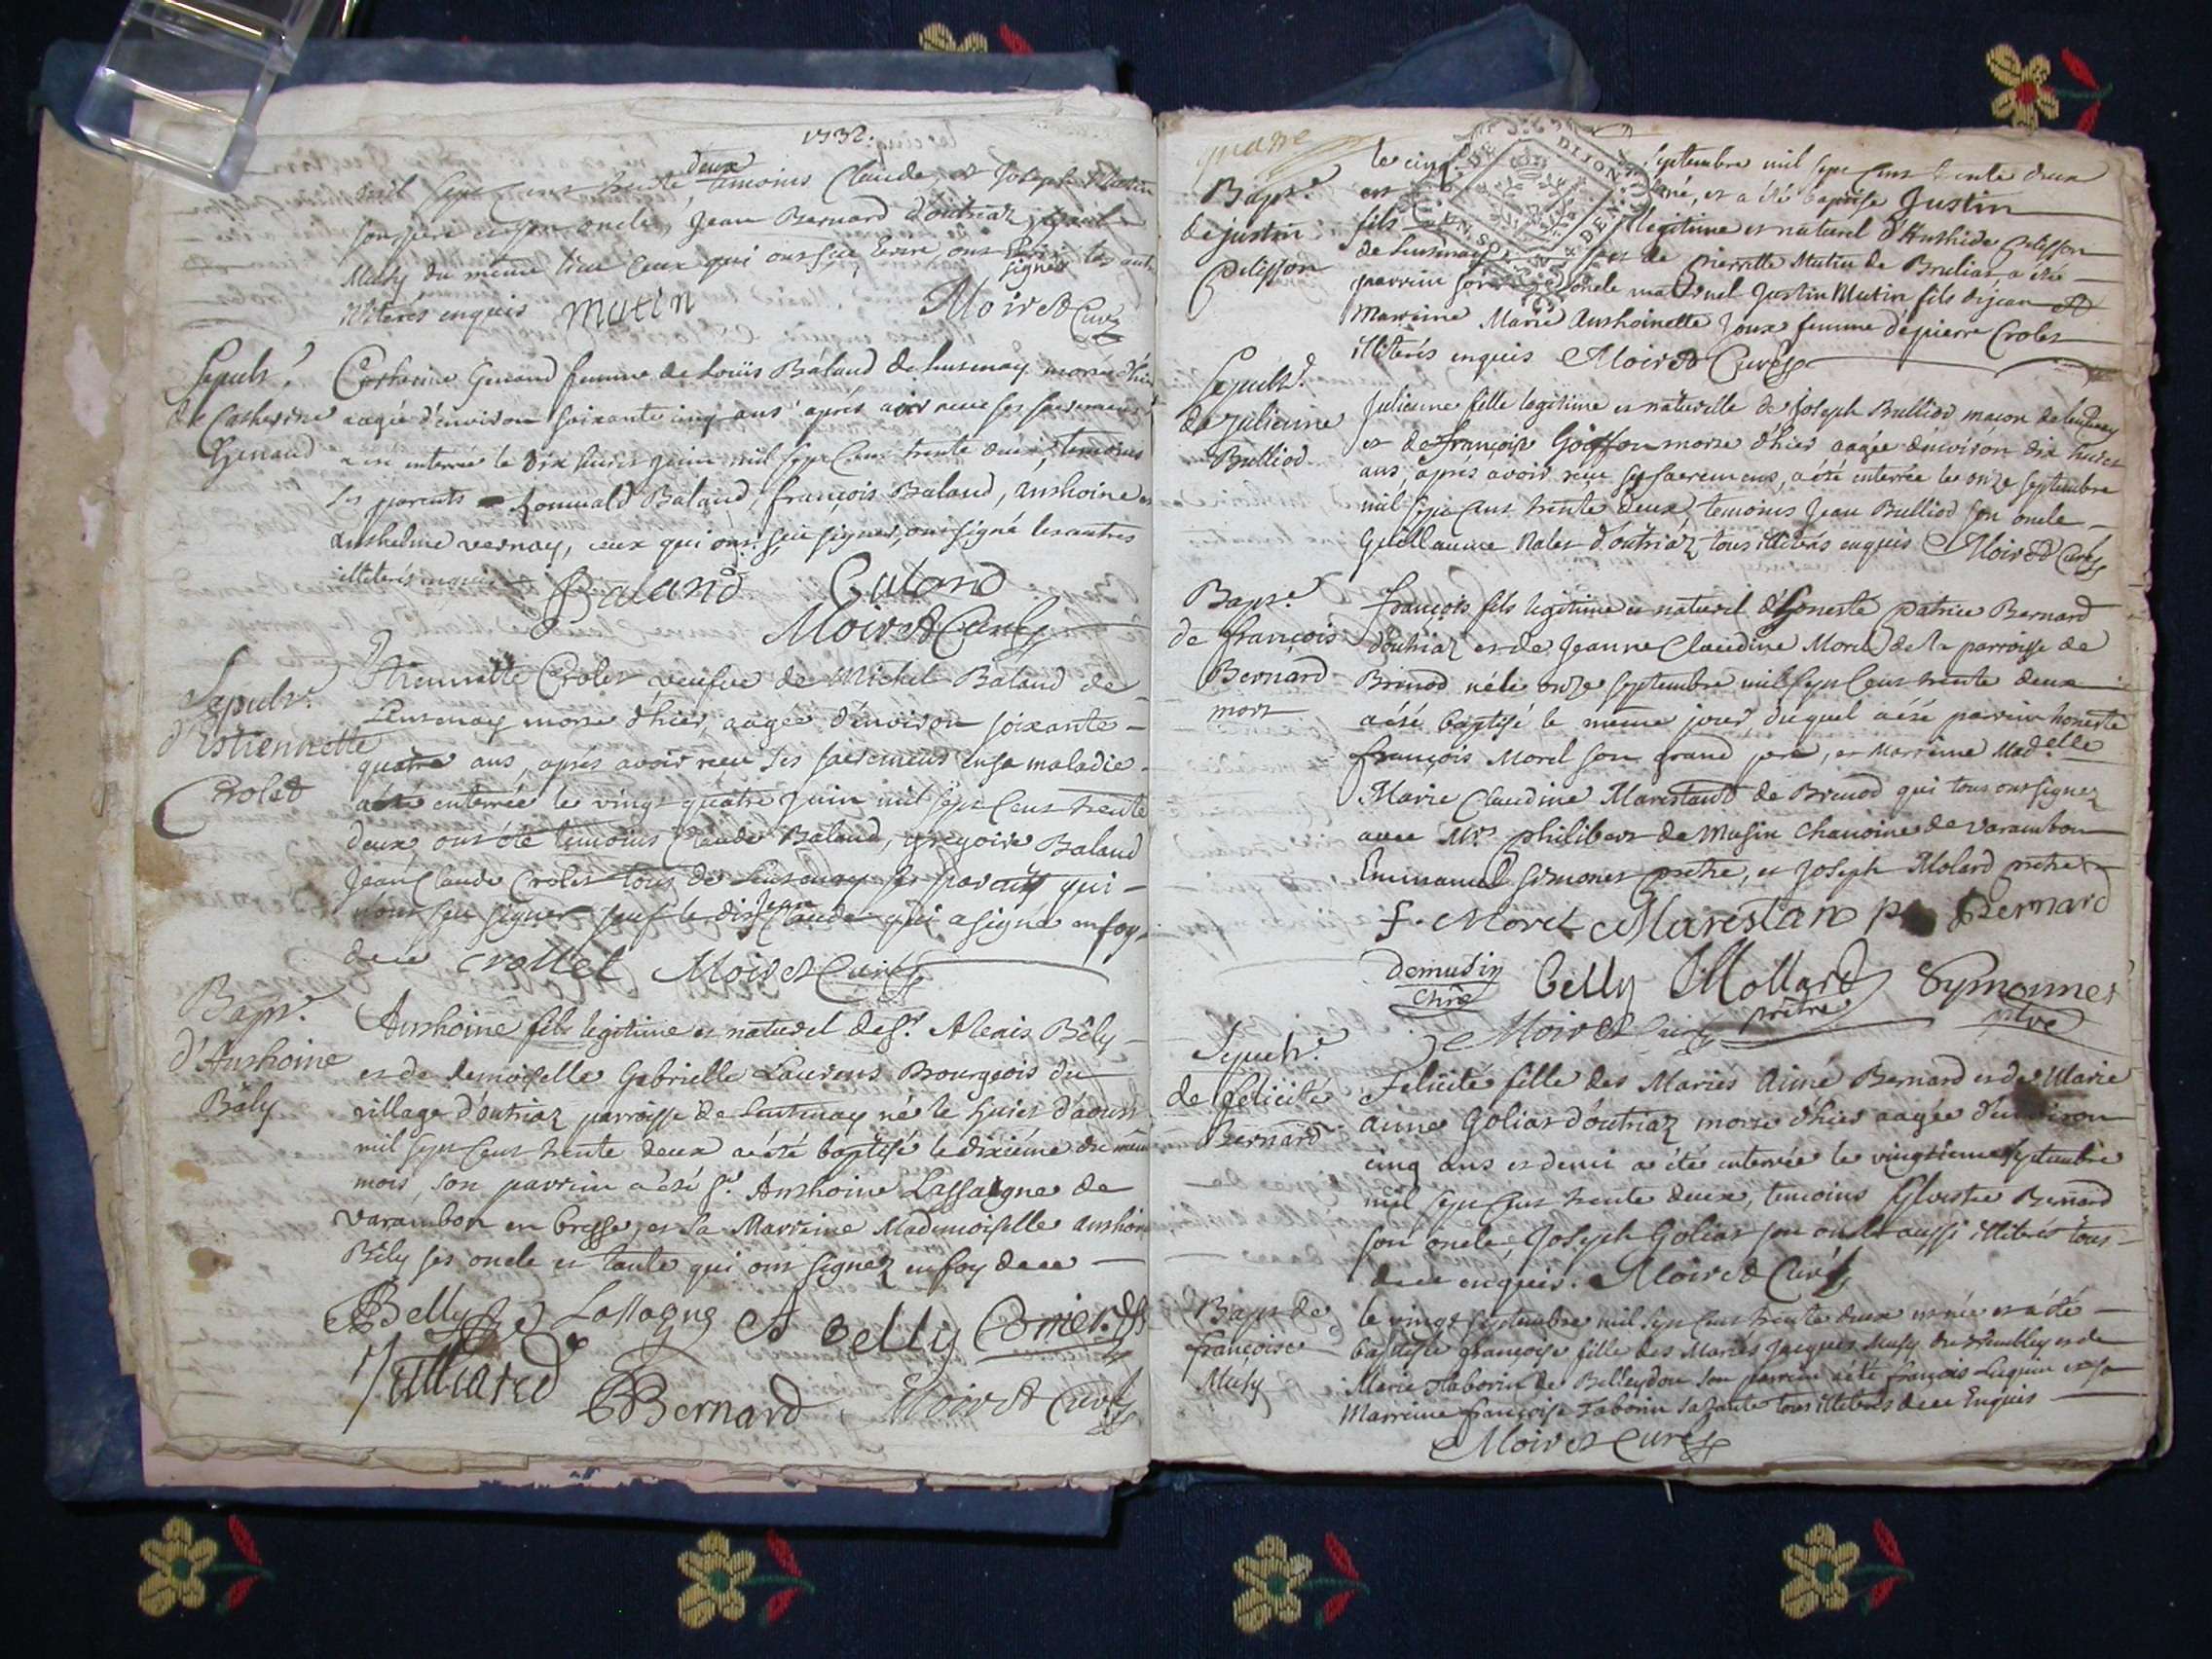 1732.
mil sept cens trente deux temoins Claude et Joseph Mutin
son pere et son oncle, Jean Bernard d'outriaz,
Musy du même lieu ceux qui ont sçu ecrire ont signés les autres
illiterés enquis Mutin Moiret Curé
Sepult.e
de Catherine
Genaud
Catherine Genaud femme de Loüis Baland de Lentenay morte d'hier
aagée d'environ soixante cinq ans aprés avoir receu ses sacremens
a été enterrée le dix huict juin mil sept cens trente deux, temoins
ses parents Romuald Baland, françois Baland, anthoine et
anthelme vernay, ceux qui ont sçu signer, ont signé les autres
illiterés enquis
Baland Baland
Moiret Curé
Sepult.e
d'Estiennette
Crolet
Etiennette Crolet veufve de Michel Baland de
Lentenay morte d'hier, aagée d'environ soixante
quatre ans, aprés avoir receu ses sacremens en sa maladie
a été enterrée le vingt quatre juin mil sept cens trente
deux ont été temoins Claude Baland, gregoire Baland
Jean Claude Crolet tous de Lentenay ses parents qui
n'ont sçu signer sauf le dit Jean Claude qui a signé en foy
de ce Crollet Moiret Curé
Bapt.e
d'Anthoine
Bély
Anthoine fils legitime et naturel de S.r Alexis Bély
et de demoiselle Gabrielle Laurens Bourgeois du
village d'outriaz parroisse de Lentenay né le huict d'aoust
mil sept cens trente deux a été baptisé le dixième du même
mois, son parrin a été S.r Anthoine Lassaigne de
varambon en bresse, et sa Marreine Mademoiselle anthoine
Bély ses oncle et tante qui ont signez en foy de ce
Belly Lassagne A Belly
Julliard Bernard Moiret Curé
quatre
Bapt.e
de justin
Pelisson
le cinq septembre mil sept cens trente deux
est né, et a été baptisé Justin
fils legitime et naturel d'Anthide Pelisson
de Lentenay et de Pierrette Mutin de Brulias a été
parrin son oncle maternel Justin Mutin fils de jean et
Marreine Marie Anthoinette Joux femme de pierre Crolet
illiterés enquis Moiret Curé
Sepult.e
de Julienne
Bulliod
Julienne fille legitime et naturelle de Joseph Bulliod maçon de lentenay
et de françoise Goiffon morte d'hier aagée d'environ dix huict
ans, aprés avoir receu ses sacremens, a été enterrée le onze septembre
mil sept cens trente deux temoins Jean Bulliod son oncle
Guillaume Nalet d'outriaz tous illiterés enquis Moiret Curé
Bapt.e
de françois
Bernard
mort
françois fils legitime et naturel d'honeste Patrice Bernard
d'outriaz et de Jeanne Claudine Morel de la parroisse de
Brenod né le onze septembre mil sept cens trente deux
a été baptisé le meme jour duquel a été parrein honeste
françois Morel son grand pere, et Marreine Mad.elle
Marie Claudine Marestant de Brenod qui tous ont signez
avec M.rs philibert de Musin chanoine de varambon
Emmanuel Simonet prêtre, et Joseph Molard prêtre
f. Morel Marestan Bernard
demusin Belly Mollard Symonnet
chne prêtre ptre
Moiret Curé
Sepult.e
de felicité
Bernard
Felicité fille des Mariés Aimé Bernard et de Marie
aimée Goliat d'outriaz morte d'hier aagée d'environ
cinq ans et demi a été enterrée le vingtieme septembre
mil sept cens trente deux, temoins Sylvestre Bernard
son oncle, Joseph Goliat son oncle aussi illiterés tous
de ce enquis. Moiret Curé
Bapt.e de
françoise
Musy
le vingt septembre mil sept cens trente deux est née et a été
baptisée françoise fille des Mariés Jacques Musy du Tremblay et de
Marie Taborin de Belleydou son parrein a été françois Luquin et sa
Marreine françoise Taborin sa tante tous illiterés de ce Enquis
Moiret Curé